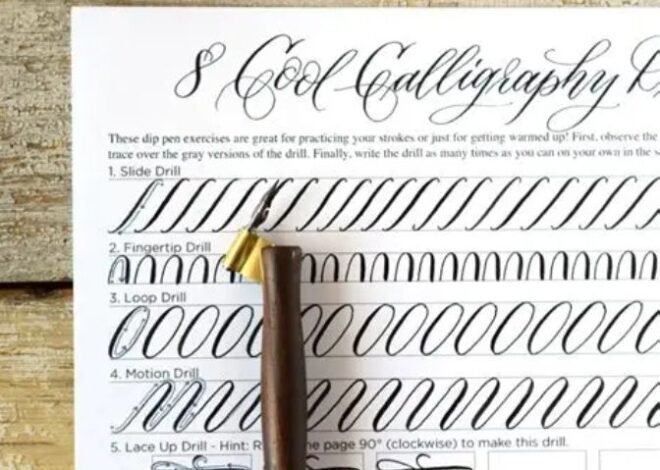 8 Cool Calligraphy
These dip pen exercises are great for practicing your strokes or just for getting warmed up! First, observe the
trace over the gray versions of the drill. Finally, write the drill as many times as you can on your own in the
1. Slide Drill
2. Fingertip Drill
3. Loop Drill
4. Motion Drill
5. Lace Up Drill - Hint: page 90° (clockwise) to make this drill.